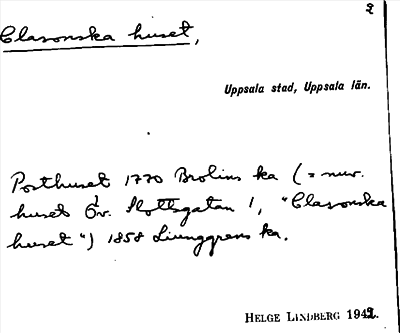 2
Clasonska huset,
Uppsala stad, Uppsala län.
Posthuset 1770 Brolins ka (= nuv.
huset Öv. Slottsgatan 1, "Clasonska
huset") 1858 Ljunggrens ka.
HELGE LINDBERG 1942.